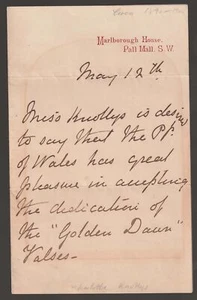 Marlborough House.
Pall Mall. S.W.
May 12th
Miss Knollys is desired
to say that the Pss.
of Wales has great
pleasure in accepting
the dedication of
the "Golden Dawn"
Valses-
Charlotte Knollys